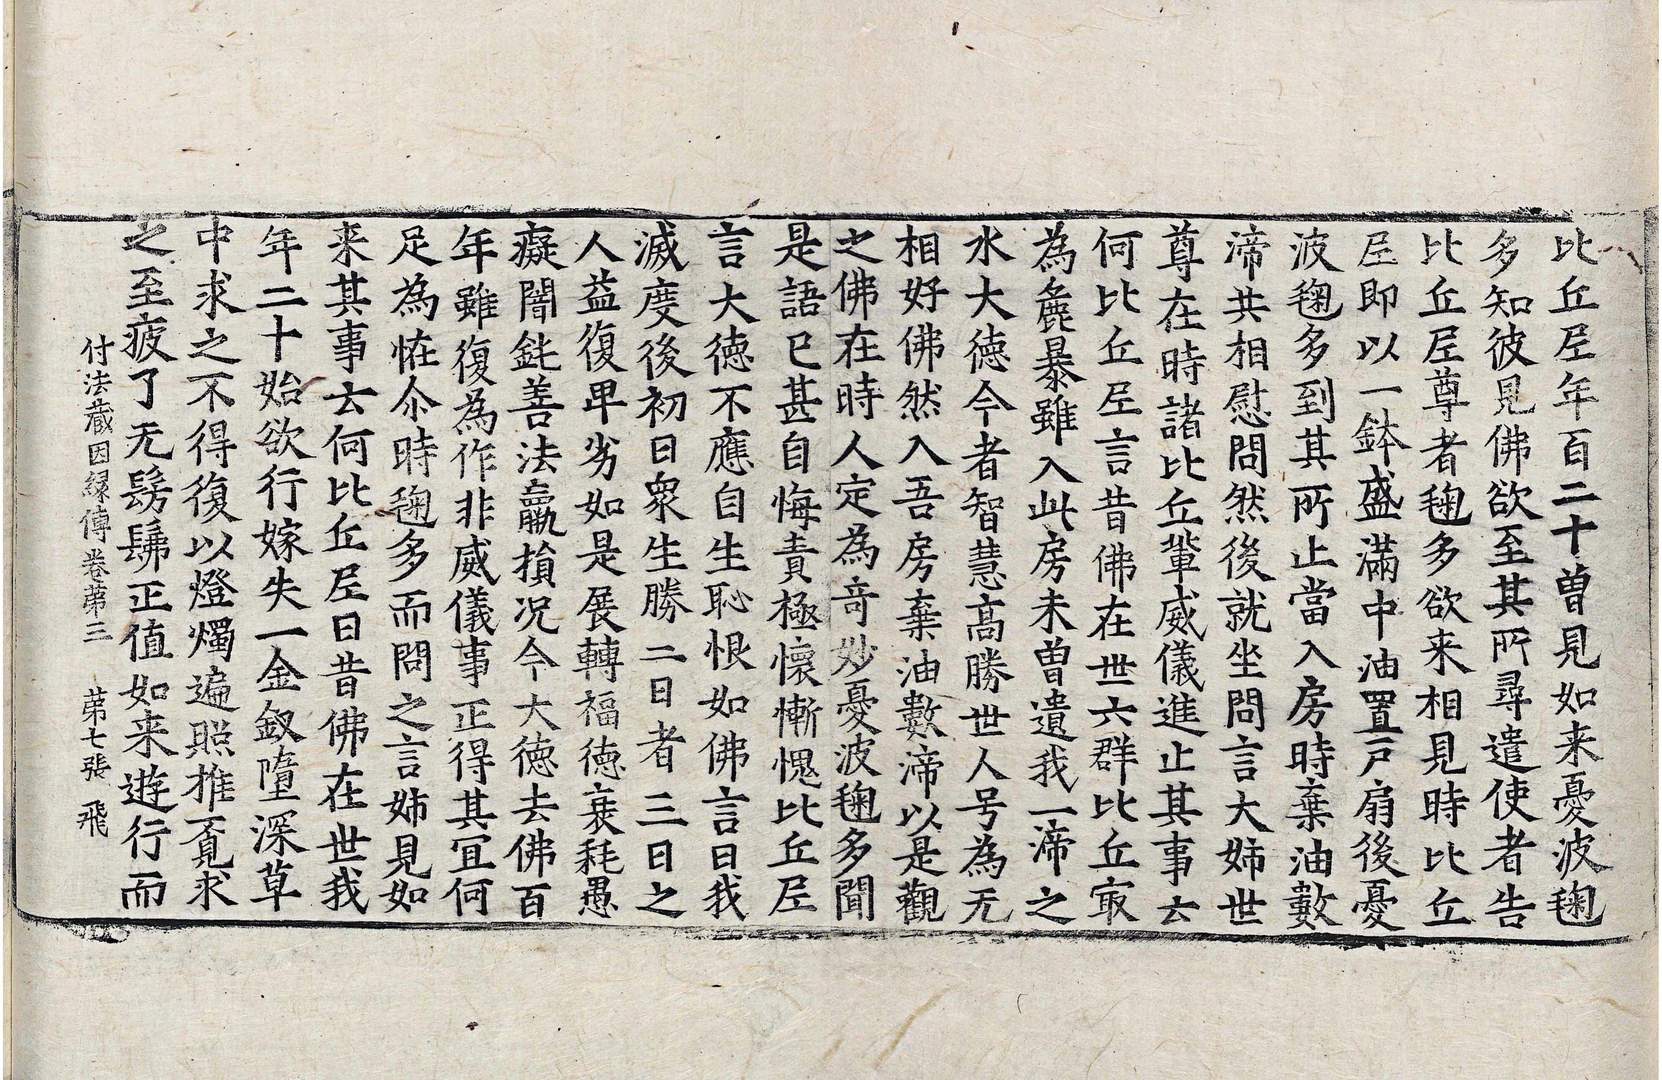 比丘𡰱年百二十曽見如来憂波毱
多知彼見佛欲至其所尋遣使者告
比丘𡰱尊者毱多欲来相見時比丘
𡰱即以一鉢盛滿中油置戶扇後憂
波毱多到其所止當入房時棄油數
渧共相慰問然後就坐問言大姊世
尊在時諸比丘輩威儀進止其事云
何比丘𡰱言昔佛在世六群比丘㝡
為麁暴雖入此房未曽遺我一渧之
水大德今者智慧高勝世人号為无
相好佛然入吾房棄油數渧以是觀
之佛在時人定為奇妙憂波毱多聞
是語已甚自悔責極懷慚愧比丘𡰱
言大德不應自生恥恨如佛言曰我
滅度後初日衆生勝二日者三日之
人益復卑劣如是展轉福德衰耗愚
癡闇鈍善法羸損况今大德去佛百
年雖復為作非威儀事正得其宜何
足為恠尒時毱多而問之言姊見如
来其事云何比丘𡰱曰昔佛在世我
年二十始欲行嫁失一金釵墮深草
中求之不得復以燈燭遍照推覓求
之至疲了无髣髴正值如来遊行而
付法藏因縁傳卷苐三 苐七張 飛